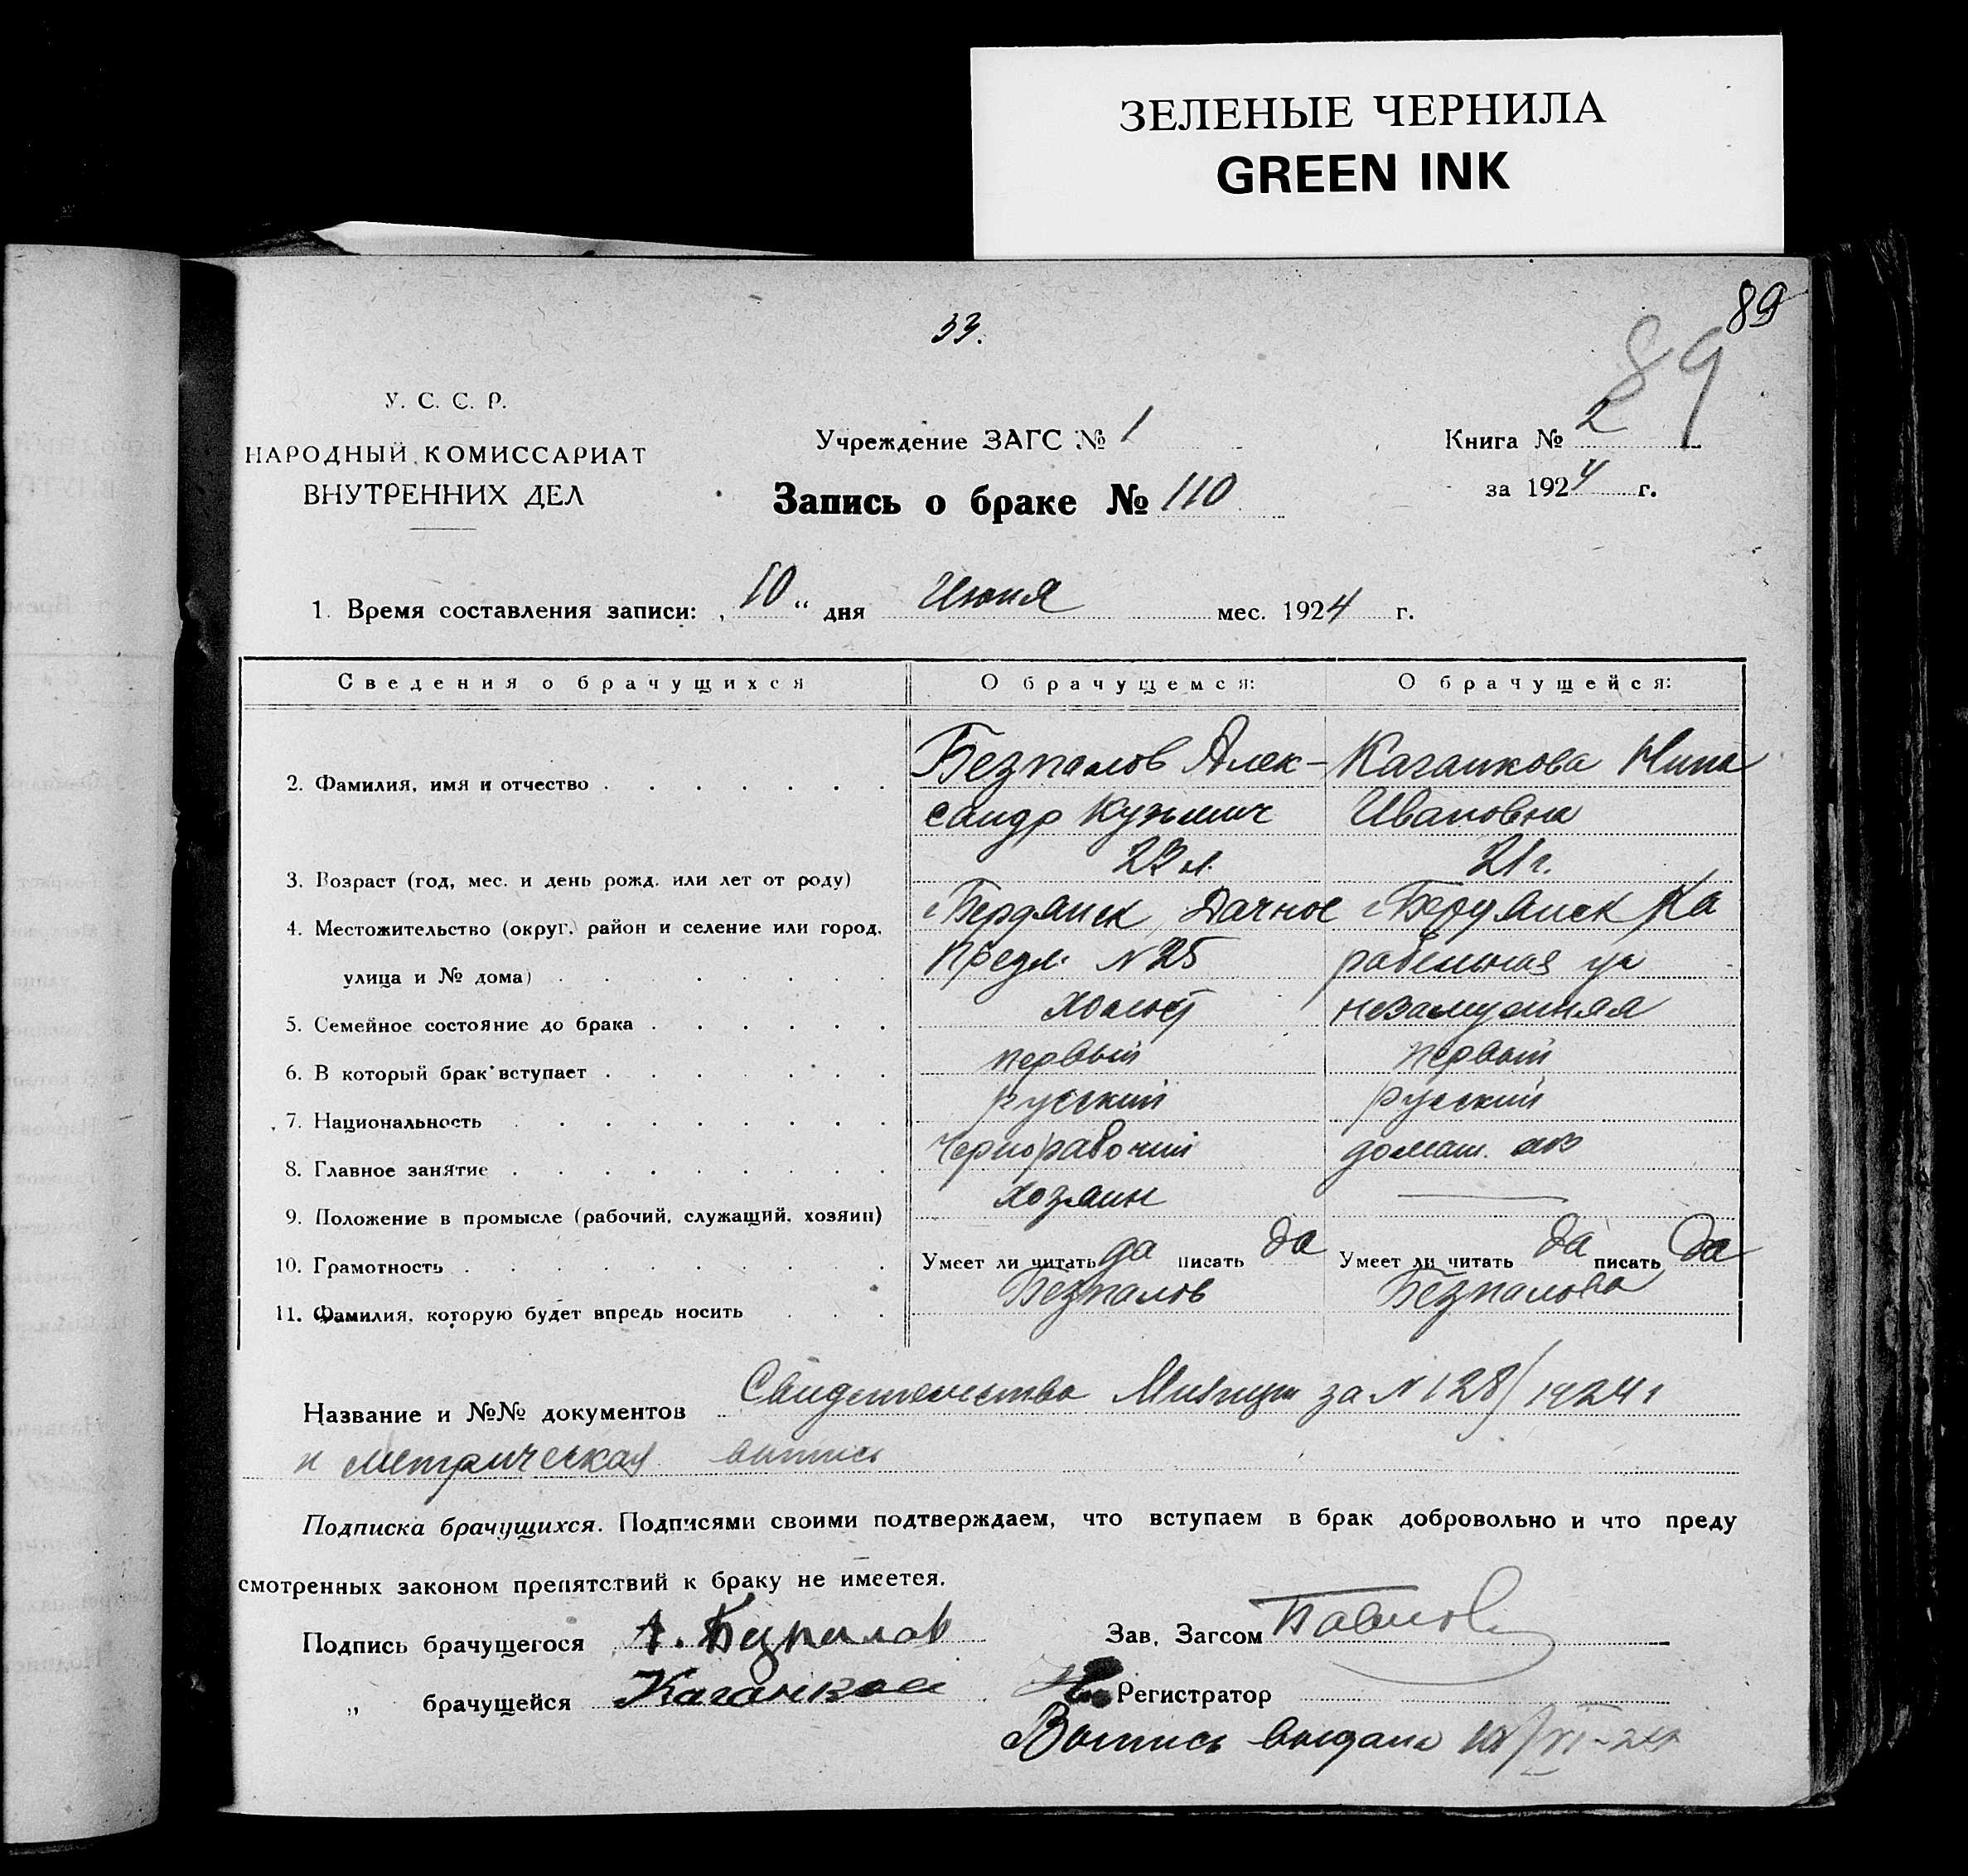 ЗЕЛЕНЫЕ ЧЕРНИЛА
GREEN INK
89
33.
89
У. С. С. Р.
НАРОДНЫЙ КОМИССАРИАТ
ВНУТРЕННИХ ДЕЛ
Учреждение ЗАГС № 1
Запись о браке № 110
Книга № 2
за 1924 г.
1. Время составления записи: „10“ дня Июня мес. 1924 г.
Сведения о брачущихся О брачущемся: О брачущейся:
2. Фамилия, имя и отчество Безпалов Алек- Каганкова Нина
сандр Кузьмич Ивановна
3. Возраст (год, мес. и день рожд. или лет от роду) 23 л. 21 г.
4. Местожительство (округ, район и селение или город, г Бердянск, Дачное г Бердянск Ка
улица и № дома) Предм. N 25 рабельная ул
5. Семейное состояние до брака холост незамужняя
6. В который брак вступает первый первый
7. Национальность русский русский
8. Главное занятие Чернорабочий домаш. хоз
9. Положение в промысле (рабочий, служащий, хозяин) хозяин
10. Грамотность Умеет ли читать да писать да Умеет ли читать да писать да
11. Фамилия, которую будет впредь носить Безпалов Безпалова
Название и №№ документов Свидетельство Милиции за N 128/1924 г
и метрическая выпись
Подписка брачущихся. Подписями своими подтверждаем, что вступаем в брак добровольно и что преду
смотренных законом препятствий к браку не имеется.
Подпись брачущегося А. Безпалов Зав. Загсом
„ брачущейся Каганкова Регистратор
Выпись выдана 10/VI-24